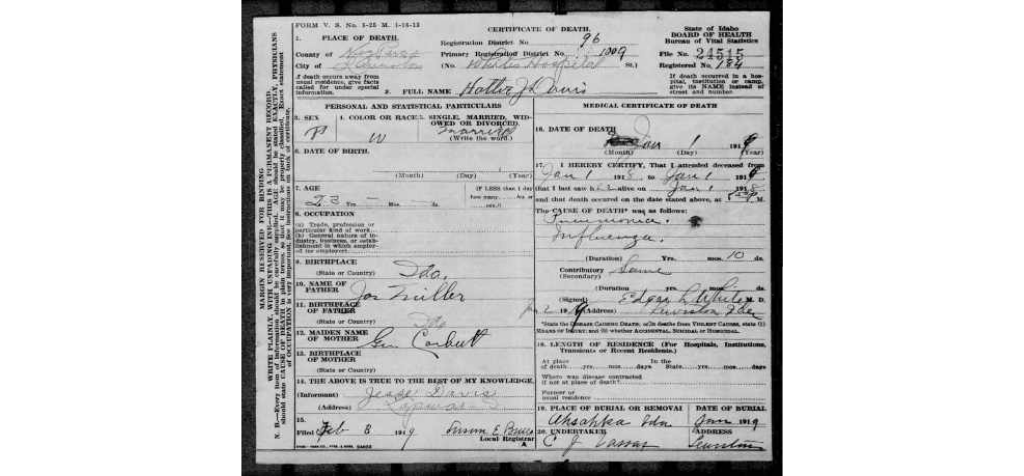 FORM V. S. No. 5-25 M. 1-16-13
CERTIFICATE OF DEATH
State of Idaho
BOARD OF HEALTH
Bureau of Vital Statistics
1. PLACE OF DEATH
Registration District No. 96
County of
Primary Registration District No. 1009
File No. 24515
City of Lewiston
(No. Whites Hospital St.)
Registered No. 184
If death occurs away from usual residence, give facts called for under special information.
If death occurred in a hospital, institution or camp, give its NAME instead of street and number.
2. FULL NAME Hattie J Davis
PERSONAL AND STATISTICAL PARTICULARS
3. SEX F
4. COLOR OR RACE W
5. SINGLE, MARRIED, WIDOWED OR DIVORCED. married
(Write the word.)
6. DATE OF BIRTH
(Month) (Day) (Year)
7. AGE
23 Yrs. Mos. ds.
IF LESS than 1 day
how many hrs or
min.?
8. OCCUPATION
(a) Trade, profession or particular kind of work
(b) General nature of industry, business, or establishment in which employed (or employer)
9. BIRTHPLACE
(State or Country) Ida.
10. NAME OF FATHER Jos Miller
11. BIRTHPLACE OF FATHER
(State or Country) Ida
12. MAIDEN NAME OF MOTHER Corbett
13. BIRTHPLACE OF MOTHER
(State or Country)
14. THE ABOVE IS TRUE TO THE BEST OF MY KNOWLEDGE.
(Informant) Jesse Davis
(Address)
15.
Filed Feb 8 1919
Local Registrar
MEDICAL CERTIFICATE OF DEATH
16. DATE OF DEATH
Jan 1 1919
(Month) (Day) (Year)
17. I HEREBY CERTIFY, That I attended deceased from
Jan 1 191 to Jan 1 1919
that I last saw h alive on Jan 1 191
and that death occurred on the date stated above, at M.
The CAUSE OF DEATH* was as follows:
Pneumonia.
Influenza.
(Duration) Yrs. mos. 10 ds.
Contributory Same
(Secondary)
(Duration) yrs. mos. ds.
(Signed) Edgar L White M. D.
Jan 2 1919 (Address) Lewiston Ida
*State the DISEASE CAUSING DEATH, or in deaths from VIOLENT CAUSES, state (1) MEANS OF INJURY; and (2) whether ACCIDENTAL, SUICIDAL or HOMICIDAL.
18. LENGTH OF RESIDENCE (For Hospitals, Institutions, Transients or Recent Residents.)
At place of death yrs. mos. days In the State yrs. mos. days
Where was disease contracted
if not at place of death?
Former or
usual residence
19. PLACE OF BURIAL OR REMOVAL
DATE OF BURIAL
Ahsahka Ida. Jan 1919
20. UNDERTAKER
ADDRESS
C J Vassar Lewiston
MARGIN RESERVED FOR BINDING
WRITE PLAINLY, WITH UNFADING INK—THIS IS A PERMANENT RECORD.
N. B.—Every item of information should be carefully supplied. AGE should be stated EXACTLY. PHYSICIANS
should state CAUSE OF DEATH in plain terms, so that it may be properly classified. Exact statement
of OCCUPATION is very important. See instructions on back of certificate.